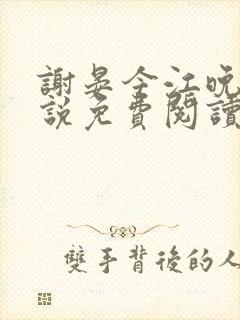 謝晏今江晚
說免費閱讀
雙手背後的人